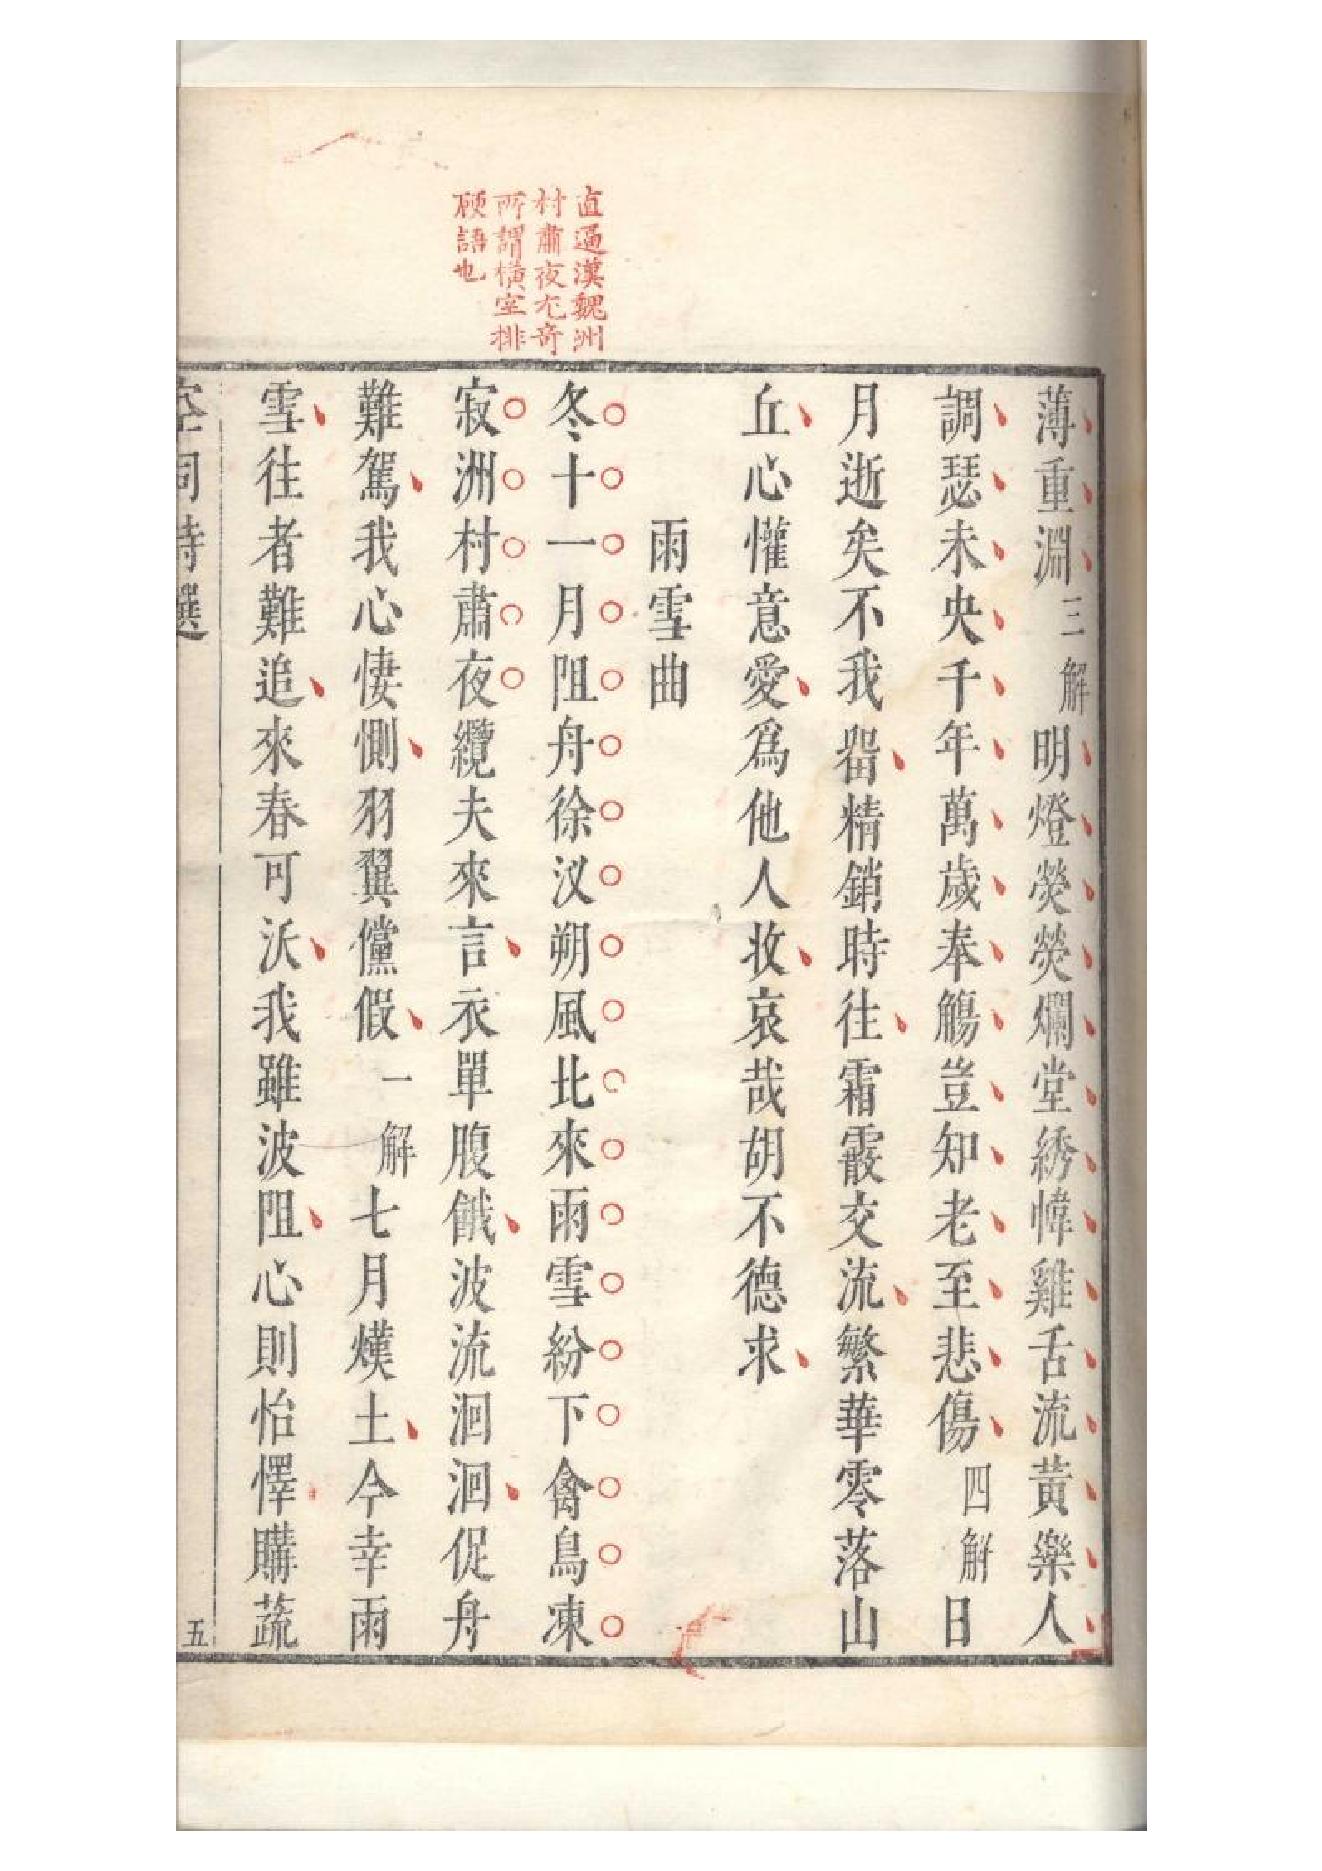 直逼漢魏洲
村肅夜尤奇
所謂橫空排
硬語也
薄重淵三解明燈熒熒爛堂綉幃雞舌流黃樂人
調瑟未央千年萬歲奉觴豈知老至悲傷四解日
月逝矣不我畱精銷時往霜霰交流繁華零落山
丘心懽意愛爲他人收哀哉胡不德求
雨雪曲
冬十一月阻舟徐汊朔風比來雨雪紛下禽鳥凍
寂洲村肅夜纜夫來言衣單腹餓波流洄洄促舟
難駕我心悽惻羽翼儻假一解七月熯土今幸雨
雪往者難追來春可沃我雖波阻心則怡懌購蔬
空同詩選
五